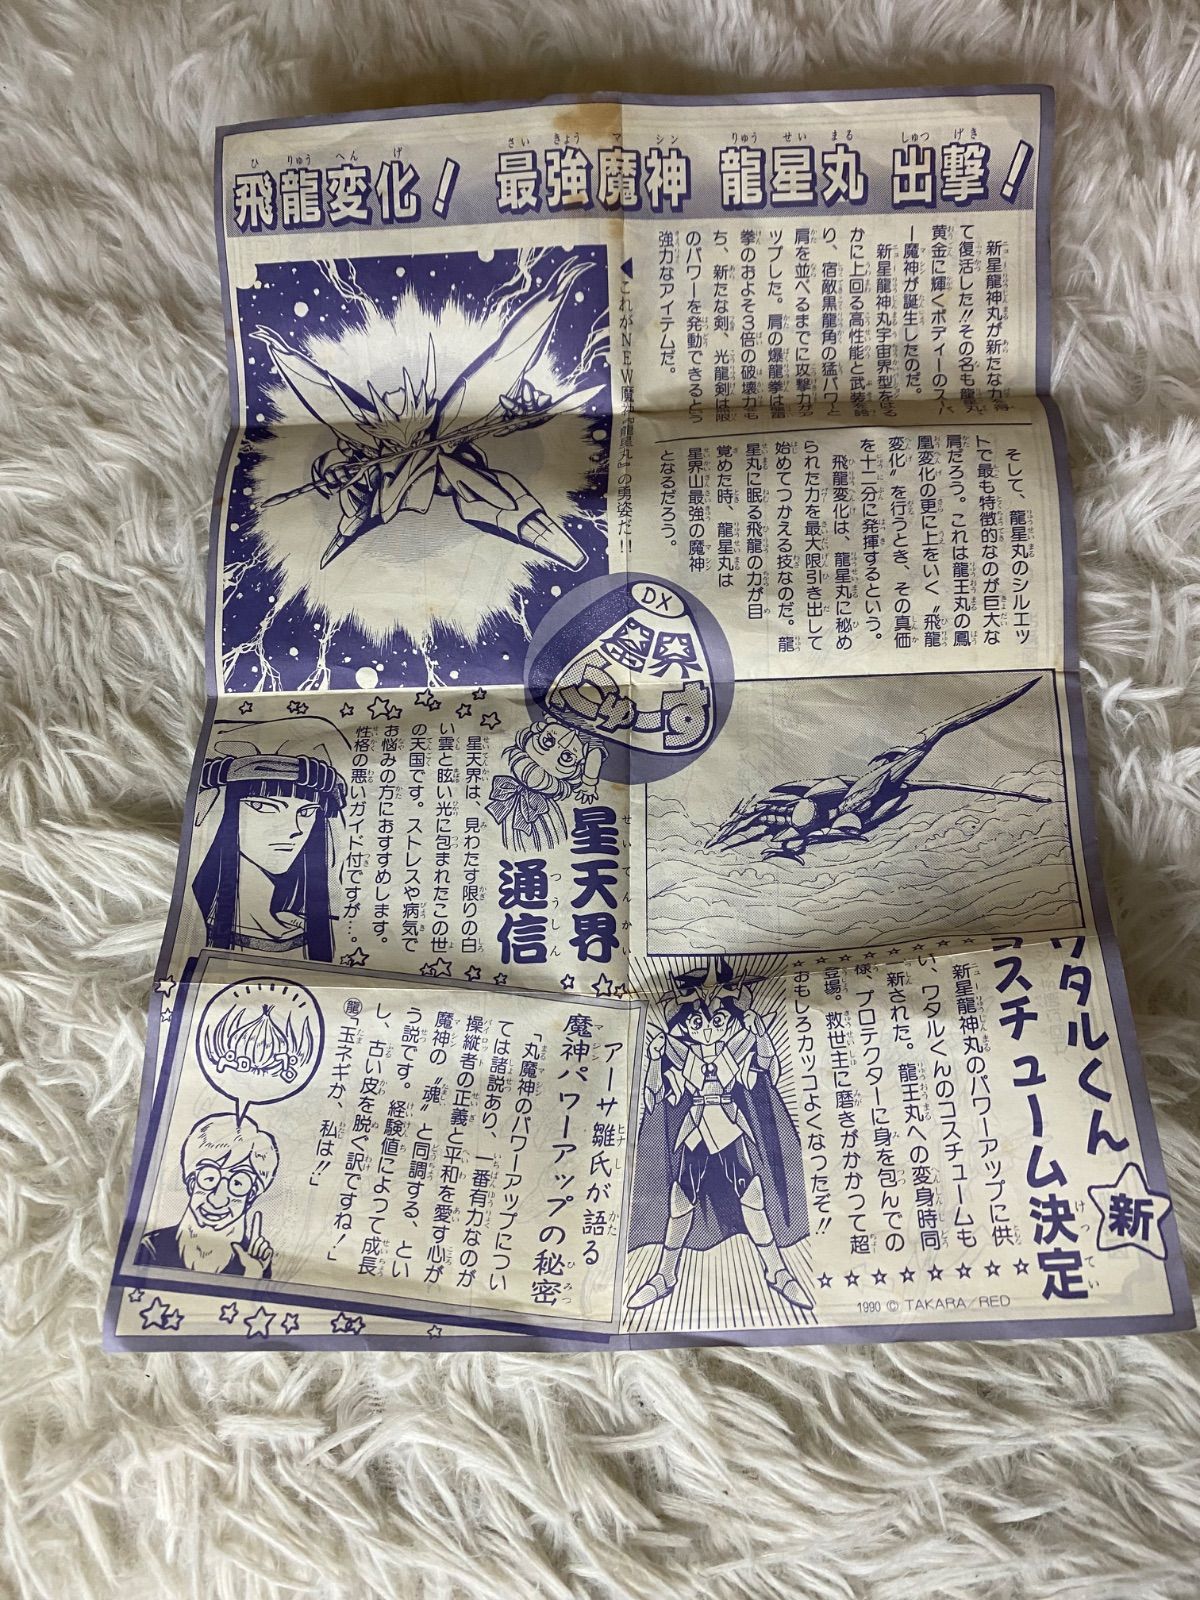 飛龍変化! 最強魔神 龍星丸 出撃!
新星龍神丸が新たな力を得
て復活した!!その名も龍星丸
黄金に輝くボディーのスーパ
ー魔神が誕生したのだ。
新星龍神丸宇宙界型をはる
かに上回る高性能と武装を誇
り、宿敵黒龍角の猛パワーと
肩を並べるまでに攻撃力がア
ップした。肩の爆龍拳は雷
拳のおよそ3倍の破壊力をも
ち、新たな剣、光龍剣は限
のパワーを発動できるとう
強力なアイテムだ。
◀これがNEW魔神『龍星丸』の勇姿だ!!
そして、龍星丸のシルエッ
トで最も特徴的なのが巨大な
肩だろう。これは龍王丸の鳳
凰変化の更に上をいく〝飛龍
変化〟を行うとき、その真価
を十二分に発揮するという。
飛龍変化は、龍星丸に秘め
られた力を最大限引き出して
始めてつかえる技なのだ。龍
星丸に眠る飛龍の力が目
覚めた時、龍星丸は
星界山最強の魔神
となるだろう。
DX
星界
にゅーす
星天界
通信
星天界は、見わたす限りの白
い雲と眩い光に包まれたこの世
の天国です。ストレスや病気で
お悩みの方におすすめします。
性格の悪いガイド付ですが…。
ワタルくん
コスチューム決定
新
新星龍神丸のパワーアップに供
い、ワタルくんのコスチュームも
新された。龍王丸への変身時同
様、プロテクターに身を包んでの
登場。救世主に磨きがかかって超
おもしろカッコよくなったぞ!!
アーサ雛氏が語る
魔神パワーアップの秘密
「丸魔神のパワーアップについ
ては諸説あり、一番有力なのが
操縦者の正義と平和を愛す心が
魔神の〝魂〟と同調する、とい
う説です。経験値によって成長
し、古い皮を脱ぐ訳ですね!」
龍「玉ネギか、私は!!」
1990 © TAKARA/RED